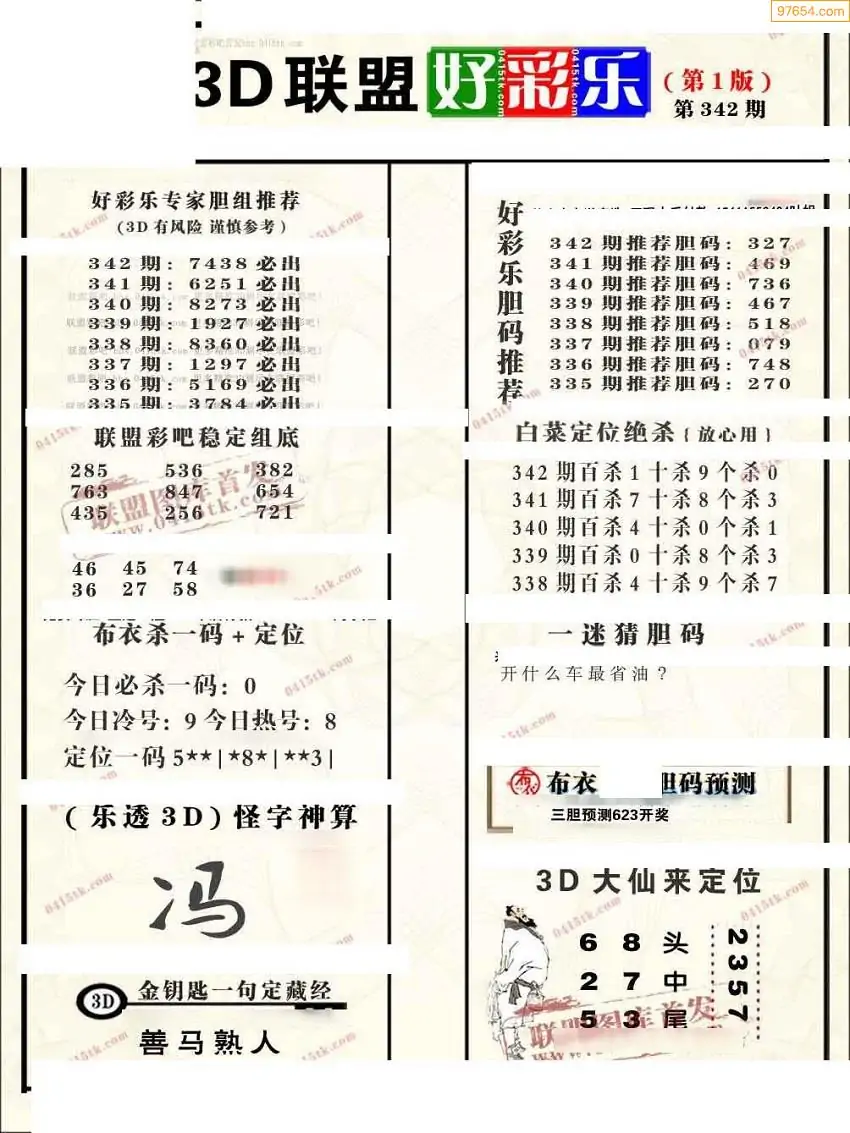 97654.com
3D联盟好彩乐
(第1版)
第342期
好彩乐专家胆组推荐
(3D有风险 谨慎参考)
342期: 7438必出
341期: 6251必出
340期: 8273必出
339期: 1927必出
338期: 8360必出
337期: 1297必出
336期: 5169必出
335期: 3784必出
联盟彩吧稳定组底
285 536 382
763 847 654
435 256 721
46 45 74
36 27 58
布衣杀一码+定位
今日必杀一码: 0
今日冷号: 9 今日热号: 8
定位一码 5**|*8*|**3|
(乐透3D)怪字神算
冯
3D 金钥匙一句定藏经
善马熟人
好彩乐胆码推荐
342期推荐胆码: 327
341期推荐胆码: 469
340期推荐胆码: 736
339期推荐胆码: 467
338期推荐胆码: 518
337期推荐胆码: 079
336期推荐胆码: 748
335期推荐胆码: 270
白菜定位绝杀{放心用}
342期百杀1十杀9个杀0
341期百杀7十杀8个杀3
340期百杀4十杀0个杀1
339期百杀0十杀8个杀3
338期百杀4十杀9个杀7
一迷猜胆码
开什么车最省油?
布衣 胆码预测
三胆预测623开奖
3D大仙来定位
6 8 头
2 7 中
5 3 尾
2357
联盟图库首发
www.0415tk.com
0415tk.com